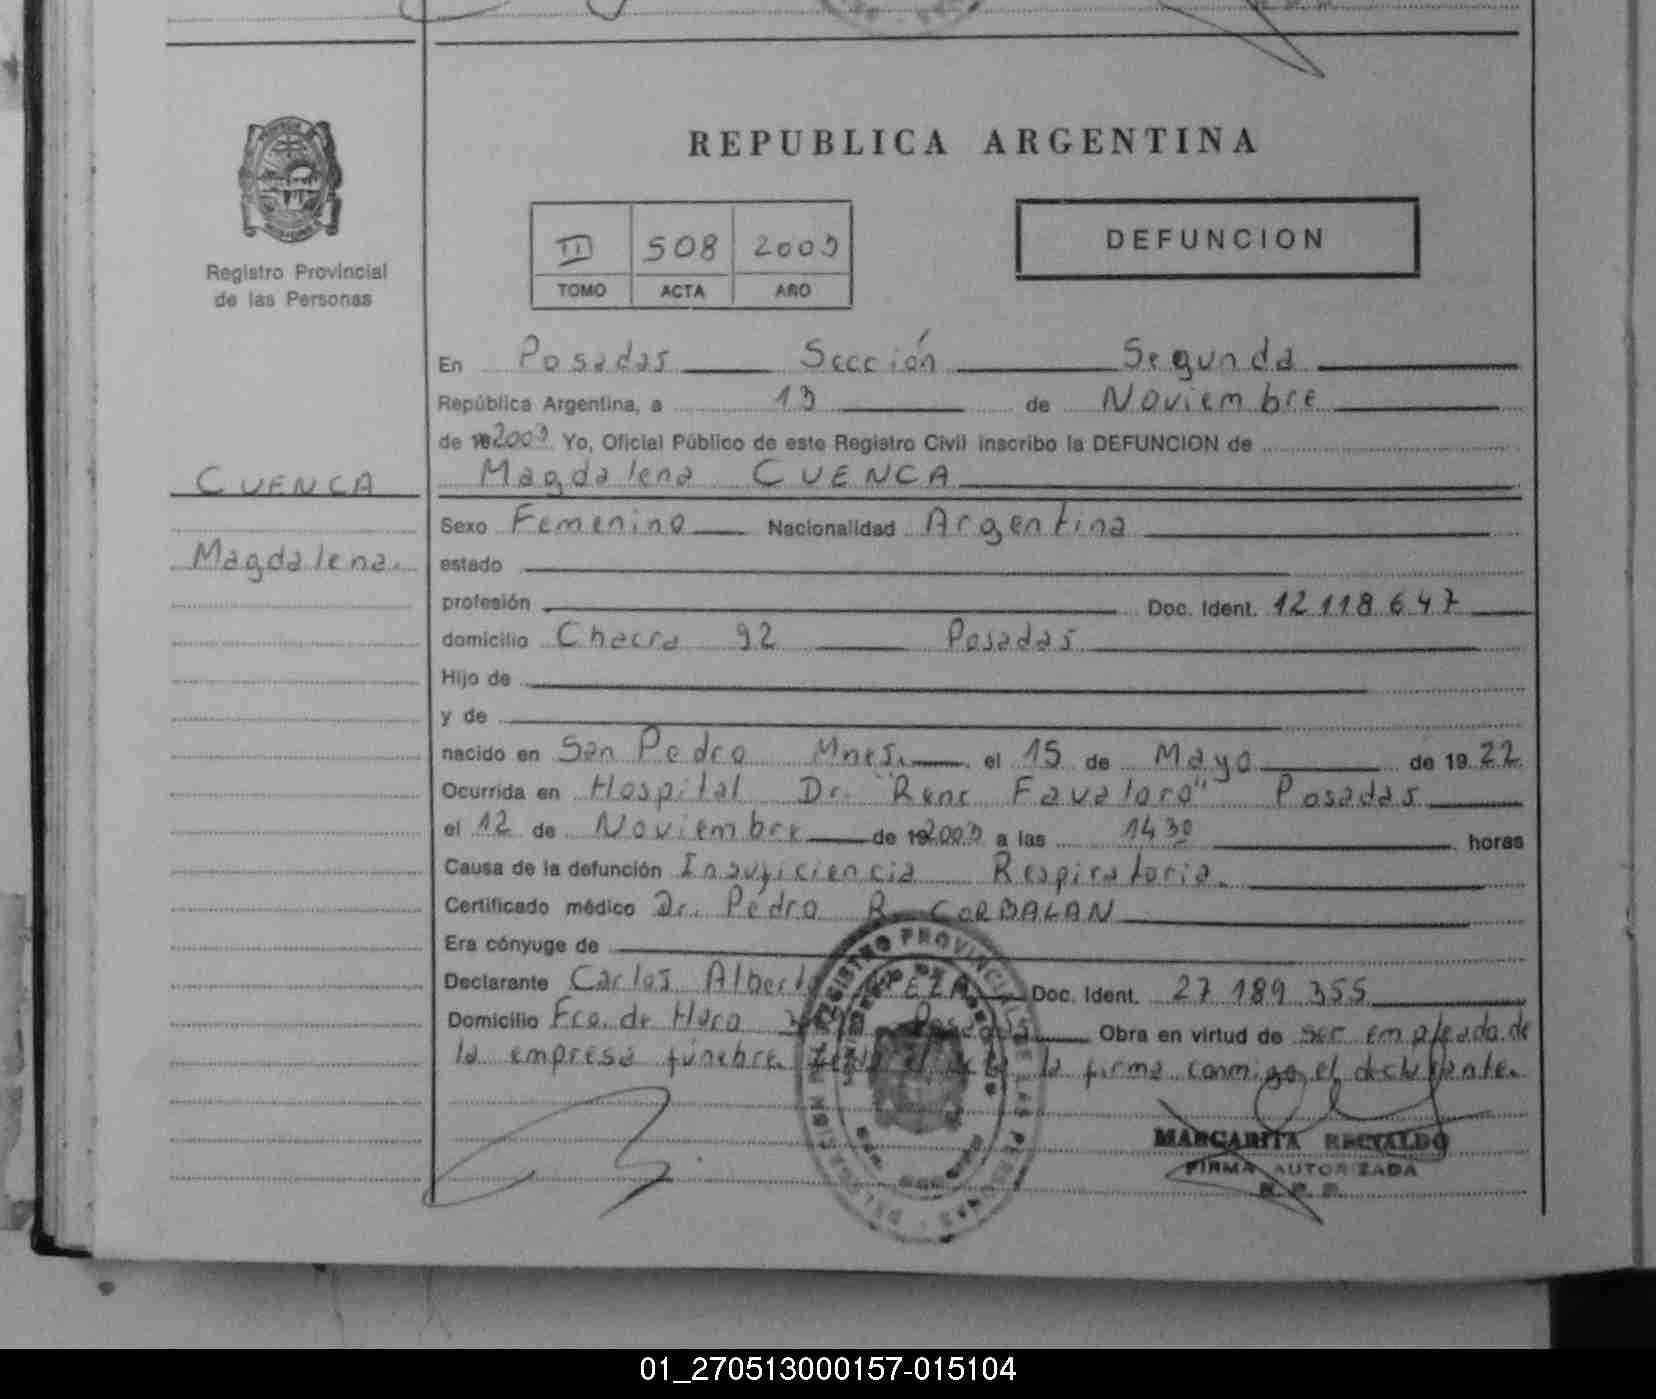 REPUBLICA ARGENTINA
Registro Provincial
de las Personas
III 508 2003
TOMO ACTA AÑO
DEFUNCION
En Posadas Sección Segunda
República Argentina, a 13 de Noviembre
de 2003 Yo, Oficial Público de este Registro Civil inscribo la DEFUNCION de
CUENCA
Magdalena CUENCA
Sexo Femenino Nacionalidad Argentina
Magdalena.
estado
profesión Doc. Ident. 12 118 647
domicilio Chacra 92 Posadas
Hijo de
y de
nacido en San Pedro Mnes. el 15 de Mayo de 1922
Ocurrida en Hospital Dr. "Rene Favaloro" Posadas
el 12 de Noviembre de 2003 a las 1430 horas
Causa de la defunción Insuficiencia Respiratoria.
Certificado médico Dr. Pedro R. CORBALAN
Era cónyuge de
Declarante Carlos Alberto Doc. Ident. 27 189 355
Domicilio Fco. de Haro Posadas Obra en virtud de ser empleado de
la empresa fúnebre. la firma conmigo, el declarante.
REGISTRO PROVINCIAL DE LAS PERSONAS
MARGARITA RECALDO
FIRMA AUTORIZADA
R. P. P.
01_270513000157-015104